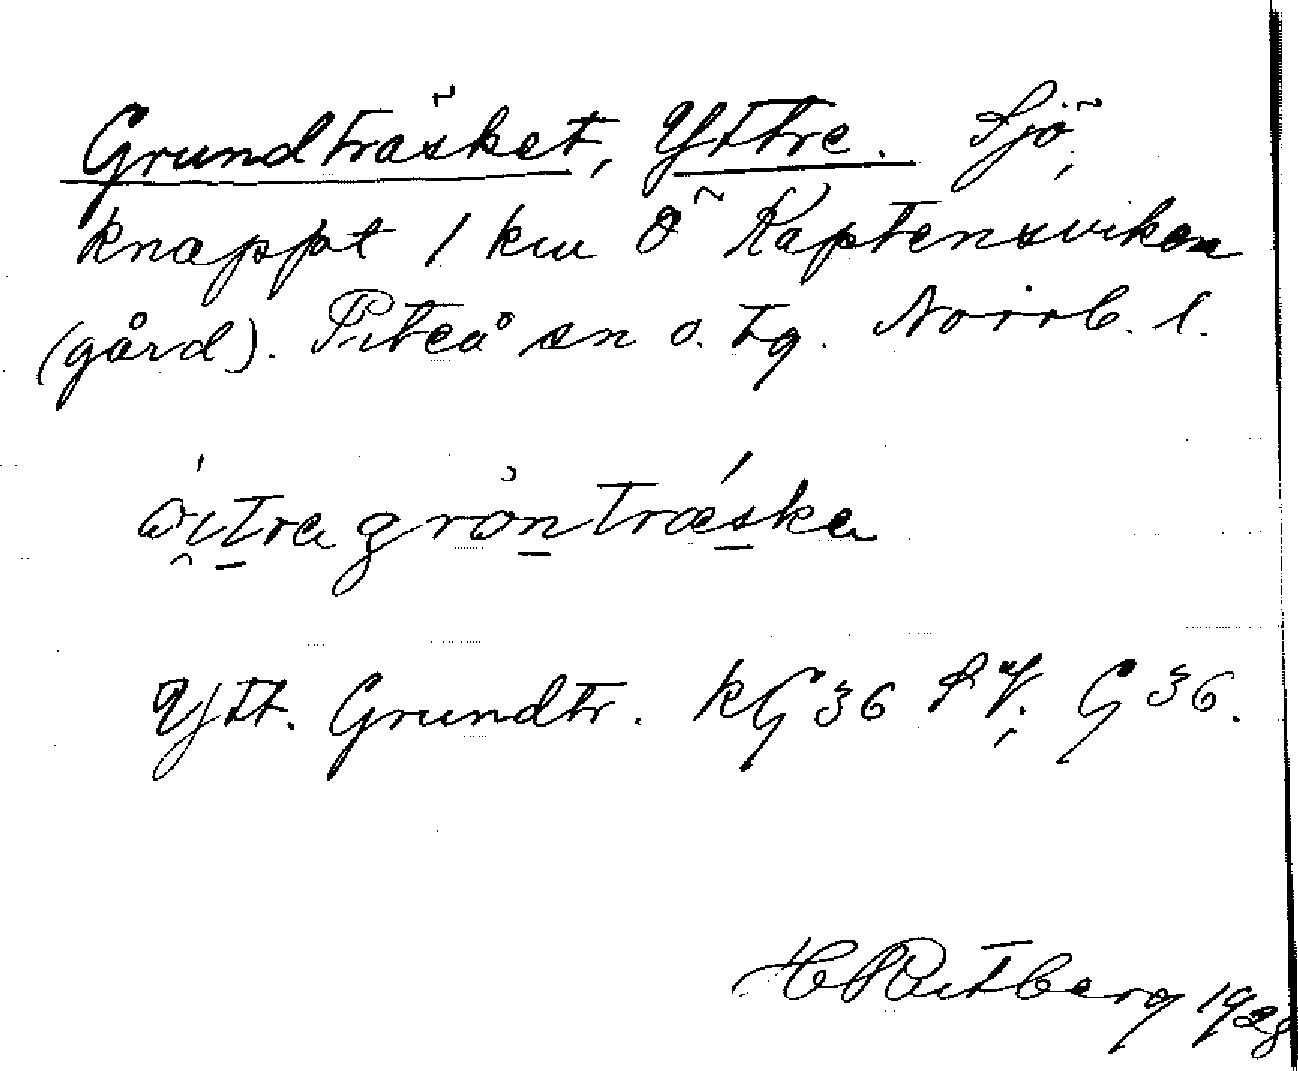 Grundträsket, Yttre. Sjö,
knappt 1 km Ö Kaptensviken
(gård). Piteå sn o. tg. Norrb. l.
grön träska
Ytt. Grundtr. kG 36 SV. G 36.
1928